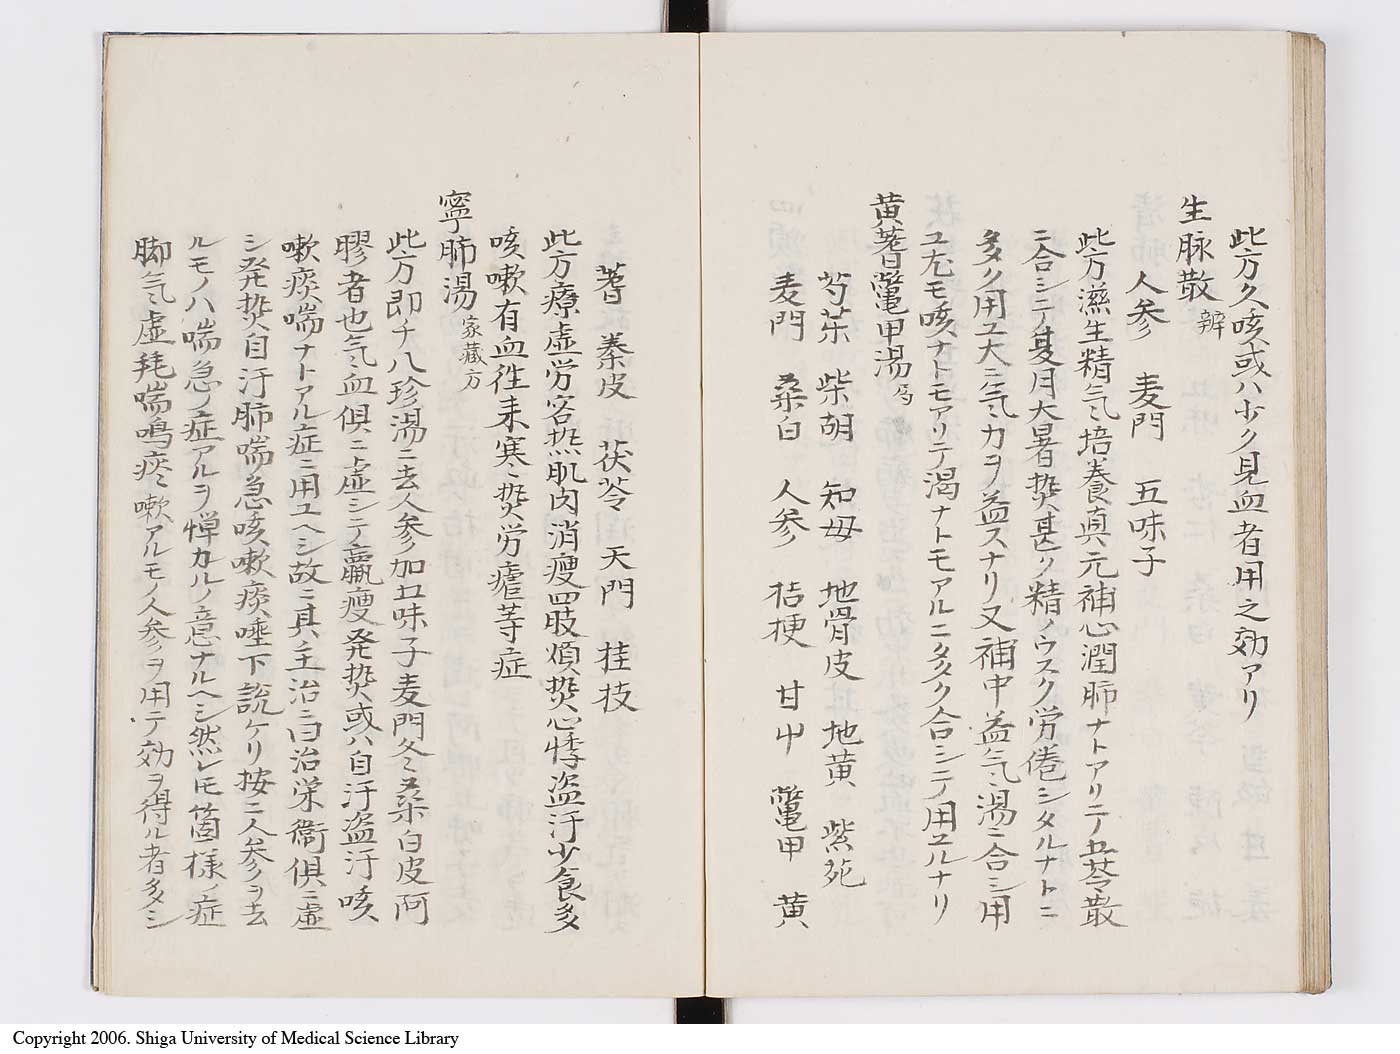 此方久咳或ハ少ク見血者用之効アリ
生脉散 辨
人参 麦門 五味子
此方滋生精气培養真元補心潤肺ナトアリテ五苓散
ニ合シテ夏月大暑熱甚ク精ノウスク労倦シタルナトニ
多ク用ユ大ニ气力ヲ益スナリ又補中益气湯ニ合シ用
ユ尤モ咳ナトモアリテ渇ナトモアルニ多ク合シテ用ユルナリ
黄蓍鼈甲湯
芍薬 柴胡 知母 地骨皮 地黄 紫苑
麦門 桑白 人参 桔梗 甘艸 鼈甲 黄
蓍 秦皮 茯苓 天門 桂枝
此方療虚労客熱肌肉消痩四肢煩熱心悸盗汗少食多
咳嗽有血徃来寒熱労瘧等症
寧肺湯 家藏方
此方即チ八珍湯ニ去人参加五味子麦門冬桑白皮阿
膠者也气血俱ニ虚シテ羸痩発熱或ハ自汗盗汗咳
嗽痰喘ナトアル症ニ用ユヘシ故ニ其主治ニ曰治栄衛俱ニ虚
シ発熱自汗肺喘急咳嗽痰唾下説ケリ按ニ人参ヲ去
ルモノハ喘急ノ症アルヲ憚カルノ意ナルヘシ然レ𪜈箇様ノ症
脚气虚耗喘鳴痰嗽アルモノ人参ヲ用テ効ヲ得ル者多シ
Copyright 2006. Shiga University of Medical Science Library